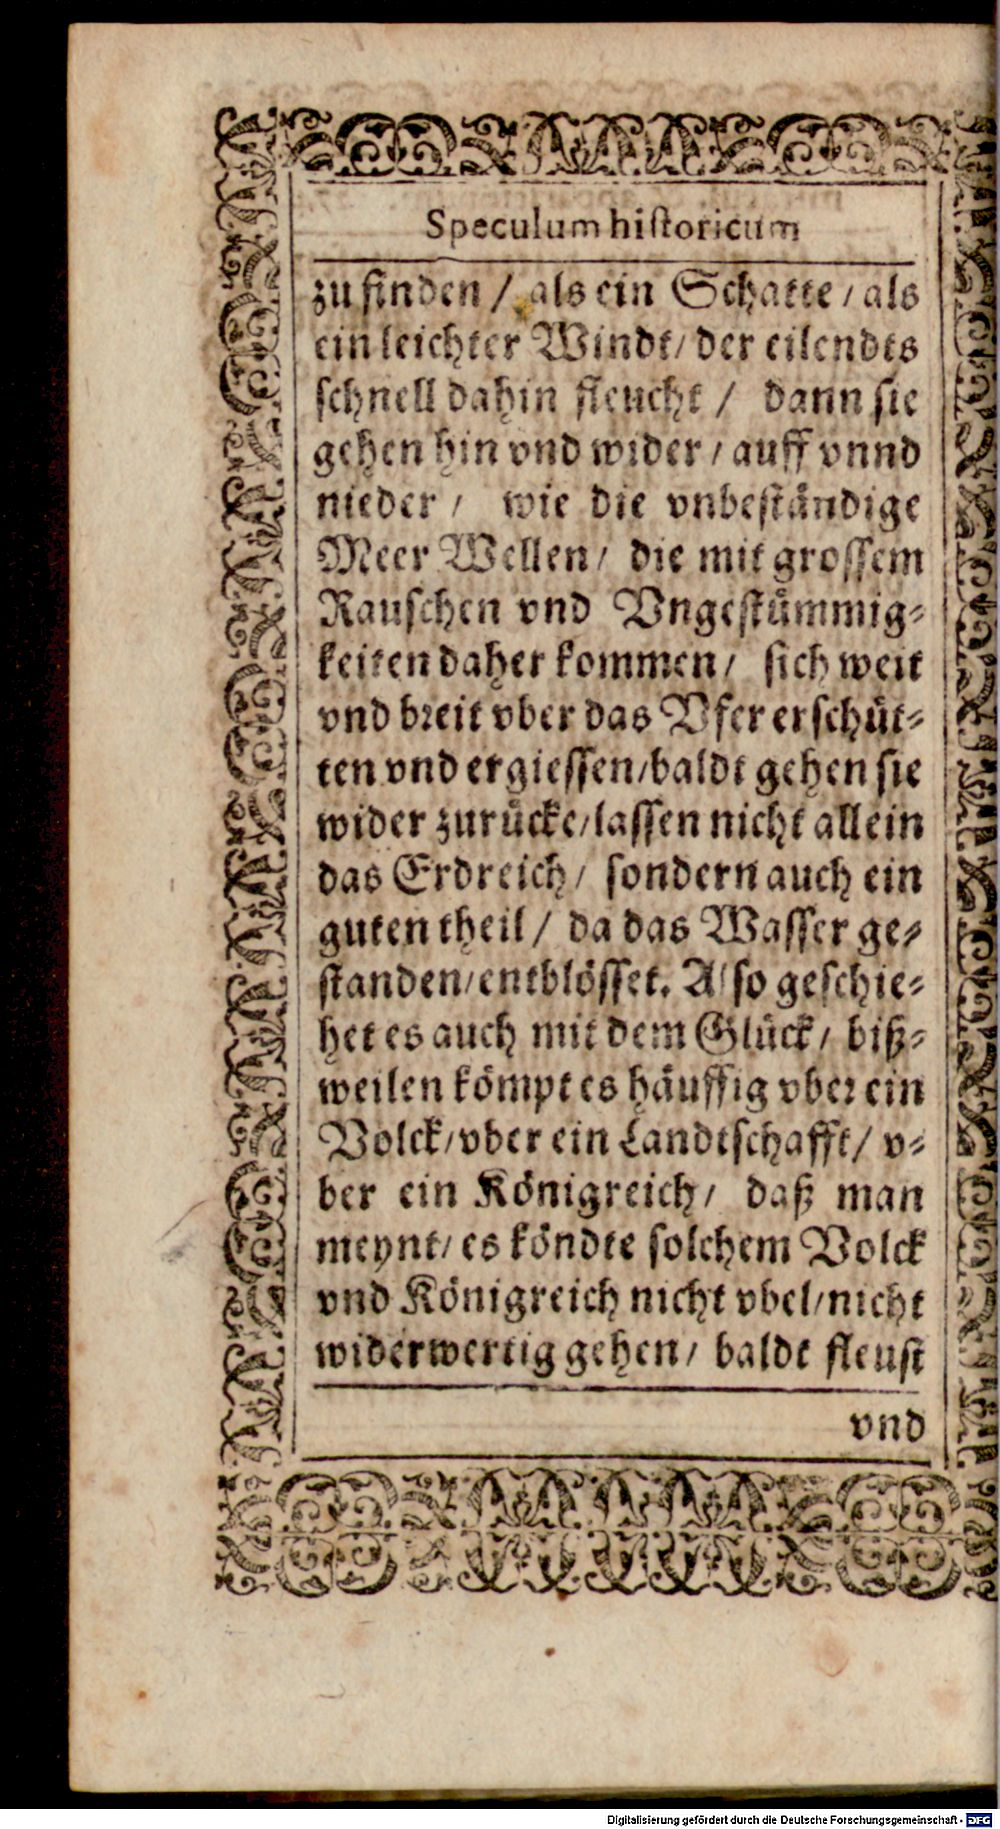 Speculum historicum
zu finden / als ein Schatte / als
ein leichter Windt / der eilendts
schnell dahin fleucht / dann sie
gehen hin vnd wider / auff vnnd
nieder / wie die vnbeständige
Meer Wellen / die mit grossem
Rauschen vnd Vngestümmig-
keiten daher kommen / sich weit
vnd breit vber das Vfer erschüt-
ten vnd ergiessen / baldt gehen sie
wider zurücke / lassen nicht allein
das Erdreich / sondern auch ein
guten theil / da das Wasser ge-
standen / entblösset. Also geschie-
het es auch mit dem Glück / biß-
weilen kömpt es häuffig vber ein
Volck / vber ein Landtschafft / v-
ber ein Königreich / daß man
meynt / es köndte solchem Volck
vnd Königreich nicht vbel / nicht
widerwertig gehen / baldt fleust
vnd
Digitalisierung gefördert durch die Deutsche Forschungsgemeinschaft - DFG